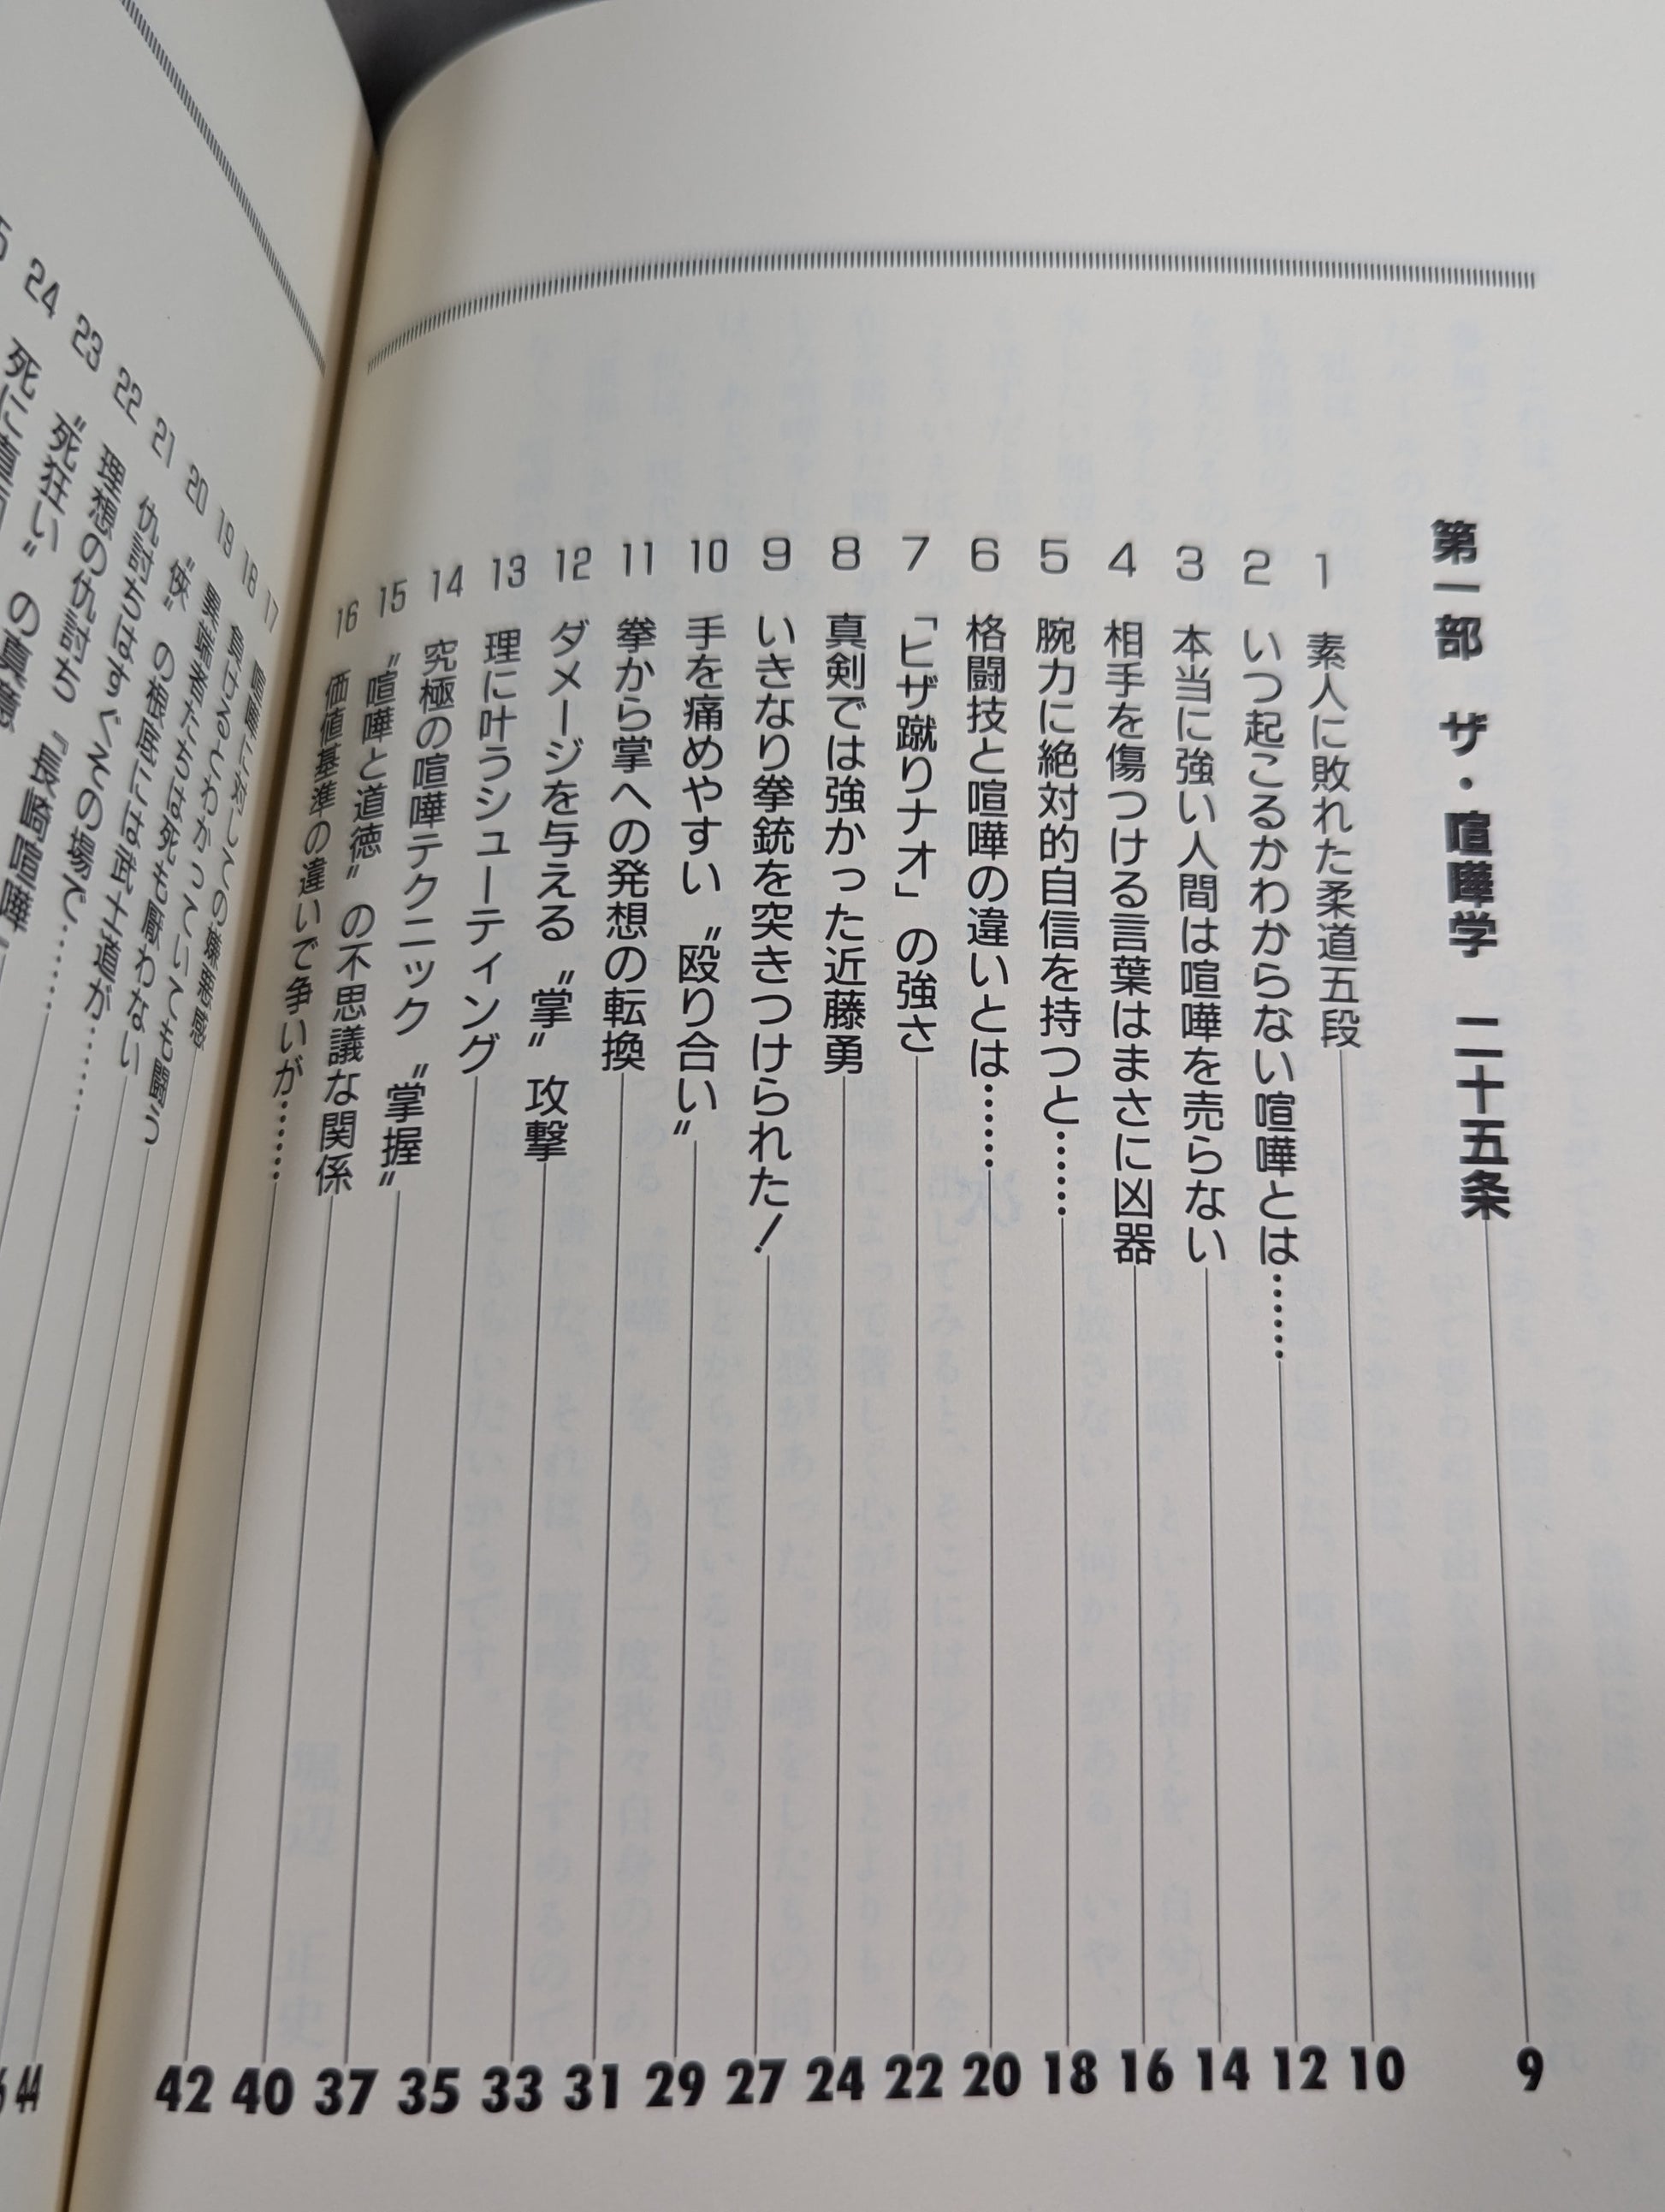 第一部　ザ・喧嘩学　二十五条 9
1 素人に敗れた柔道五段 10
2 いつ起こるかわからない喧嘩とは…… 12
3 本当に強い人間は喧嘩を売らない 14
4 相手を傷つける言葉はまさに凶器 16
5 腕力に絶対的自信を持つと…… 18
6 格闘技と喧嘩の違いとは…… 20
7 「ヒザ蹴りナオ」の強さ 22
8 真剣では強かった近藤勇 24
9 いきなり拳銃を突きつけられた！ 27
10 手を痛めやすい〝殴り合い〟 29
11 拳から掌への発想の転換 31
12 ダメージを与える〝掌〟攻撃 33
13 理に叶うシューティング 35
14 究極の喧嘩テクニック〝掌握〟 37
15 〝喧嘩と道徳〟の不思議な関係 40
16 価値基準の違いで争いが…… 42
17 喧嘩に対しての嫌悪感 44
18 負けるとわかっていても闘う
19 異端者たちは死も厭わない
20 〝侠〟の根底には武士道が……
21 仇討ちはすぐその場で……
22 理想の仇討ち『長崎喧嘩』
23 〝死狂い〟の真意
24 死に直面